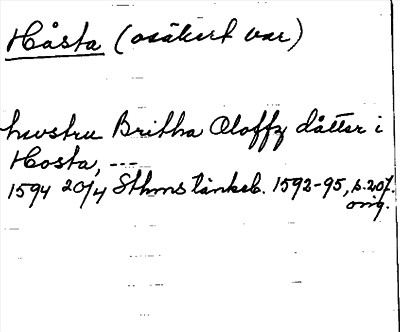 Håsta (osäkert var)
hwstru Britha Oloffz dåtter i
Hosta, ---
1594 20/4 Sthms tänkeb. 1592-95, s. 207.
orig.